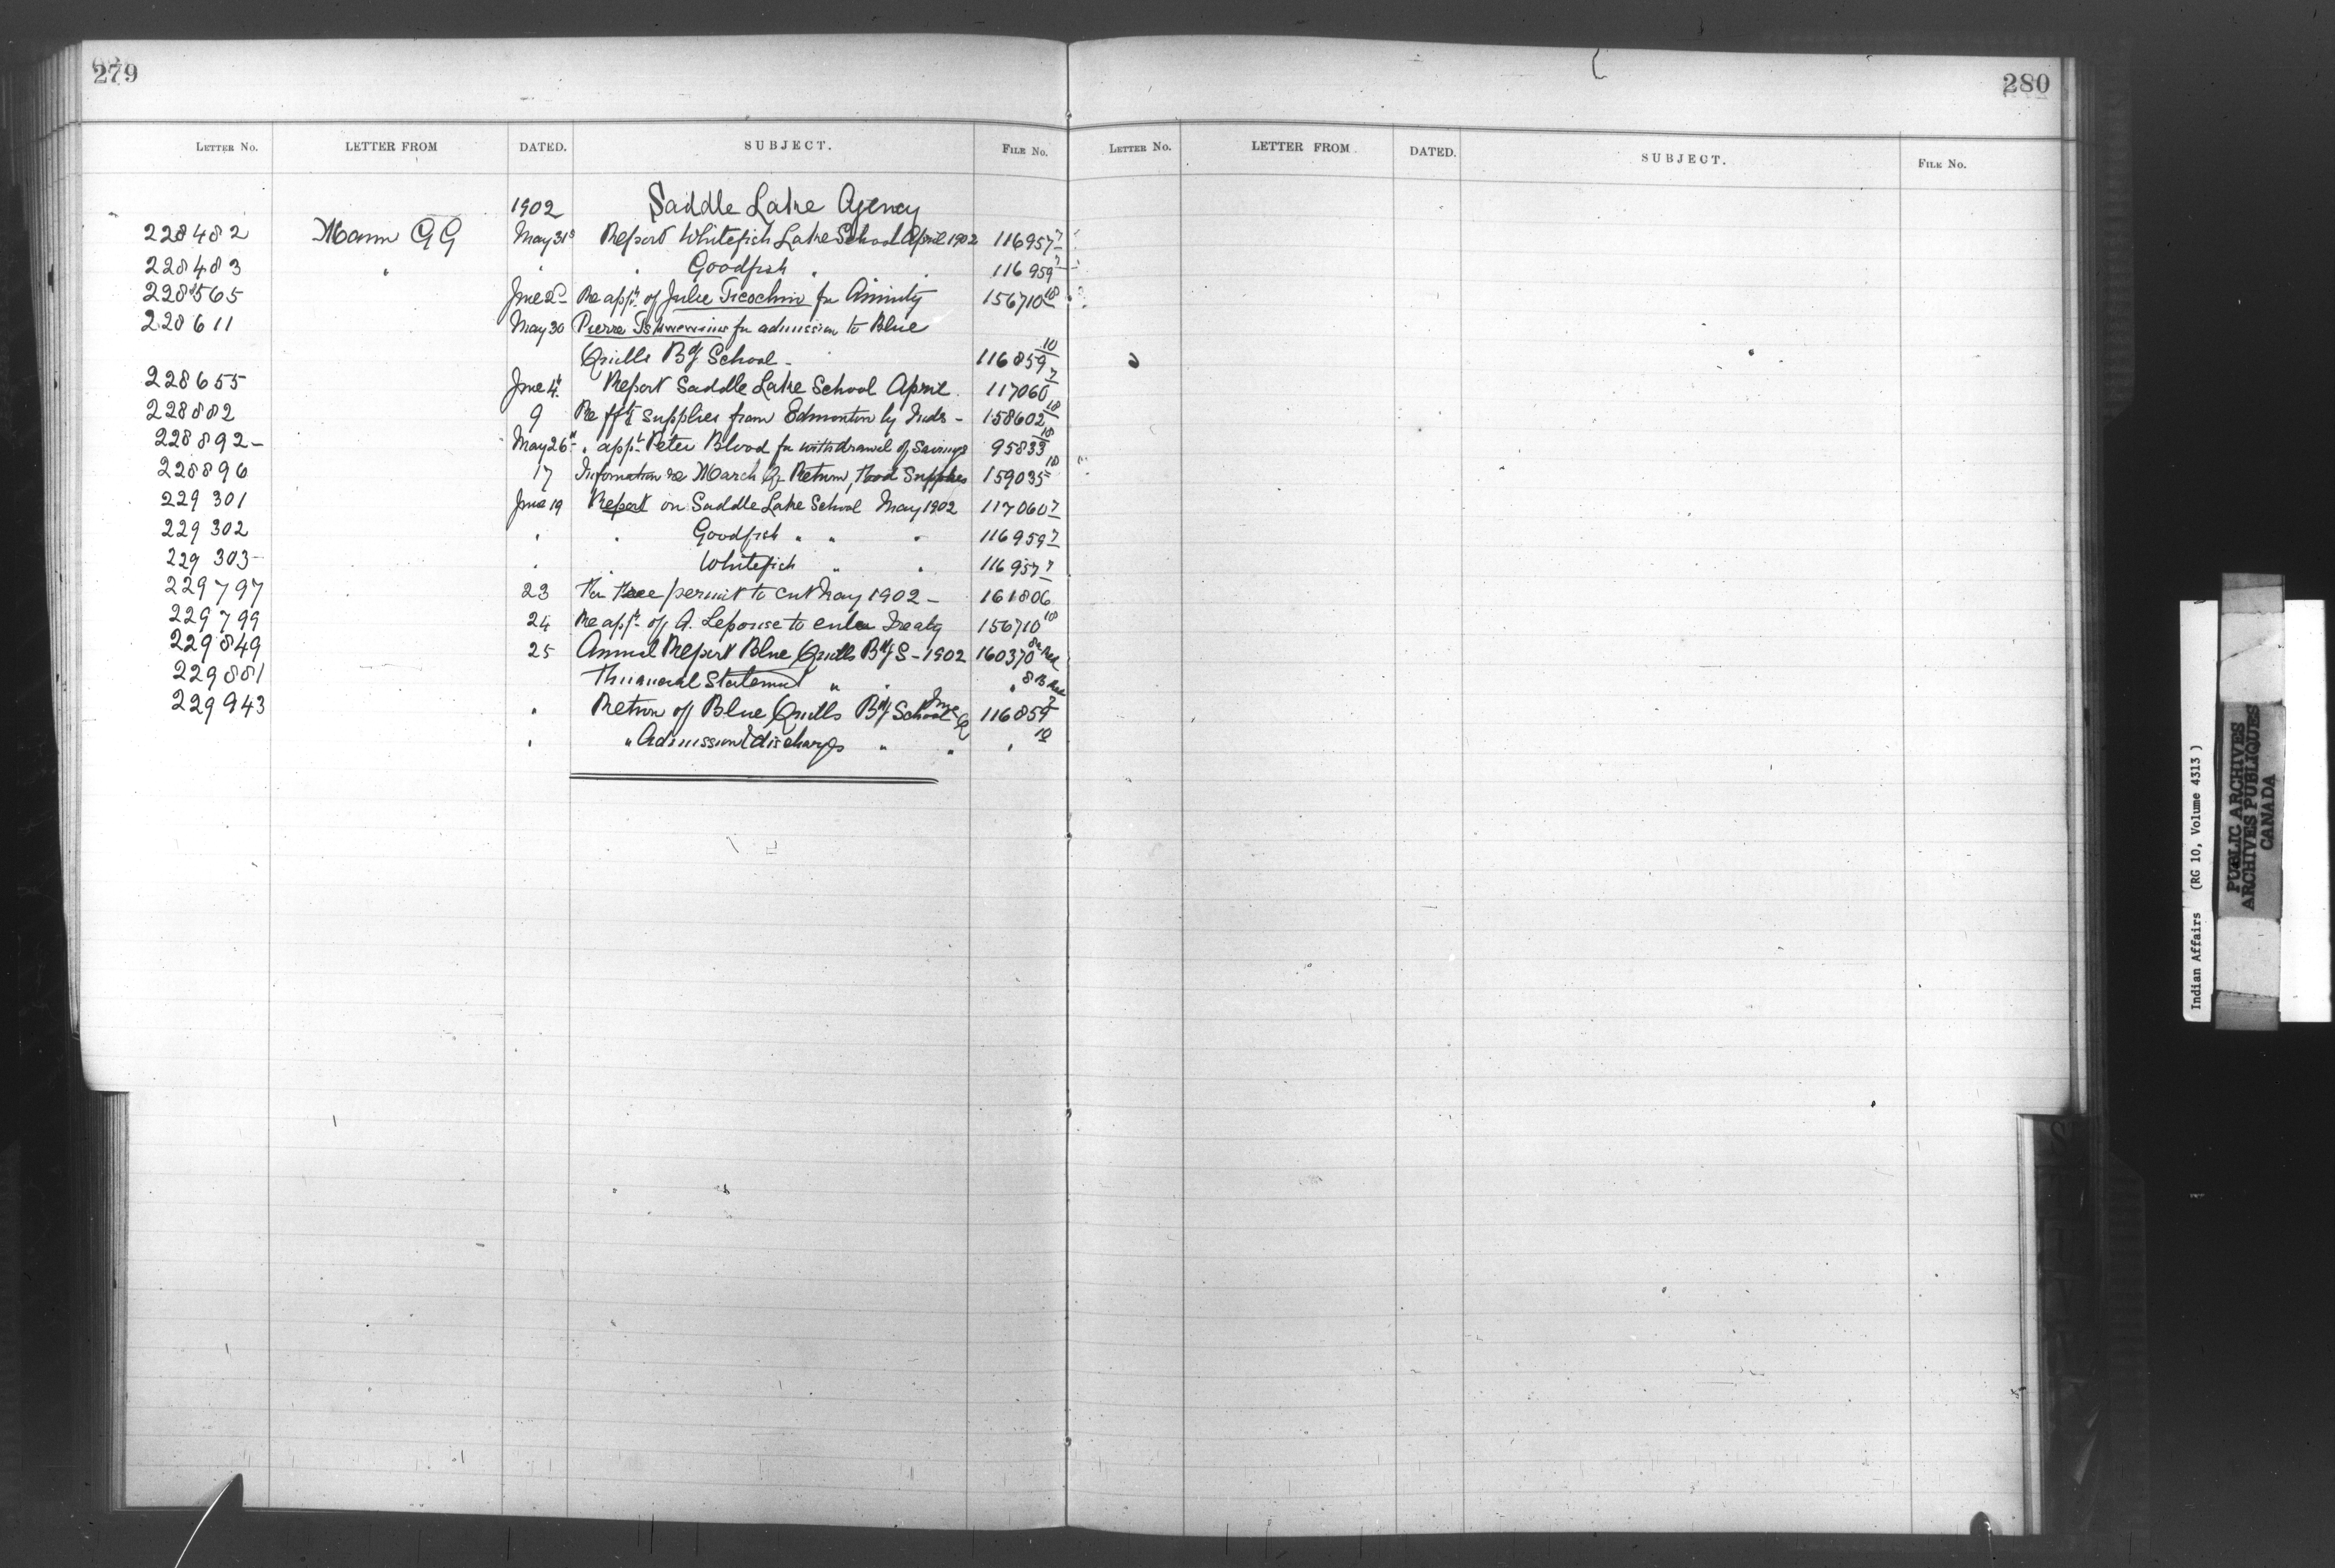 279
LETTER NO. LETTER FROM DATED. SUBJECT. FILE NO.
1902 Saddle Lake Agency
228482 Mann GG May 31st Report Whitefish Lake School April 1902 116957 7
228483 " " " Goodfish " " 116959 7
228565 June 2d Re appn of Julie for Annuity 156710 10
228611 May 30 Pierre for admission to Blue
Quills Bdg School - 116859 10
228655 June 4th Report Saddle Lake School April 117060 7
228882 9 Re frt supplies from Edmonton by Inds - 158602 10
228892- May 26th " appn Peter Blood for withdrawal of Savings 95833 10
228896 17 Information re March Qr Return, Food Supplies 159035 10
229301 June 19 Report on Saddle Lake School May 1902 117060 7
229302 " " Goodfish " " " 116959 7
229303- " " Whitefish " " 116957 7
229797 23 For free permit to cut hay 1902 - 161806
229799 24 Re appn of A. Lepouse to enter Treaty 156710 10
229849 25 Annual Report Blue Quills Bdg S - 1902 160370 8a
229881 Financial Statement " " " 8B
229943 " Return of Blue Quills Bdg School June Q 116859 7
" " Admission & discharge " " " 10
280
LETTER NO. LETTER FROM DATED. SUBJECT. FILE NO.
Indian Affairs (RG 10, Volume 4313)
PUBLIC ARCHIVES
ARCHIVES PUBLIQUES
CANADA